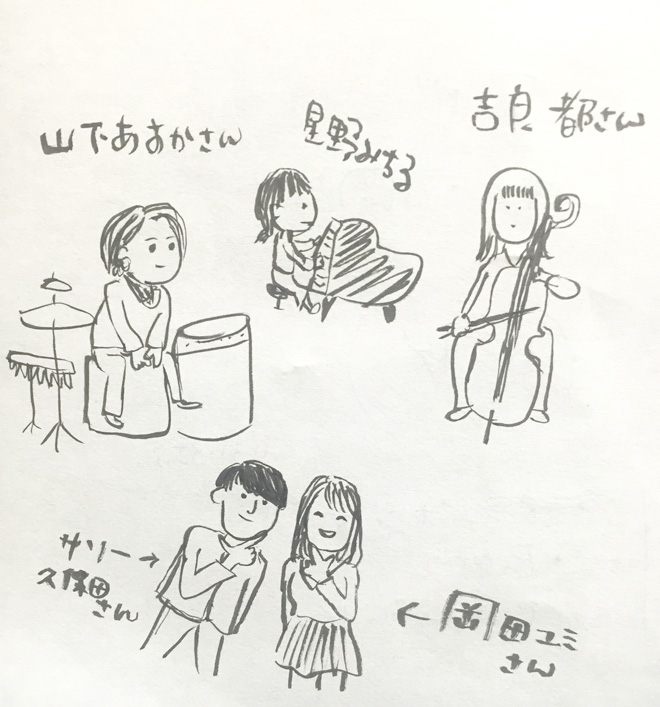 山下あすかさん
星野みちる
吉良 都さん
サリー→
久保田
さん
← 田ユミ
さん